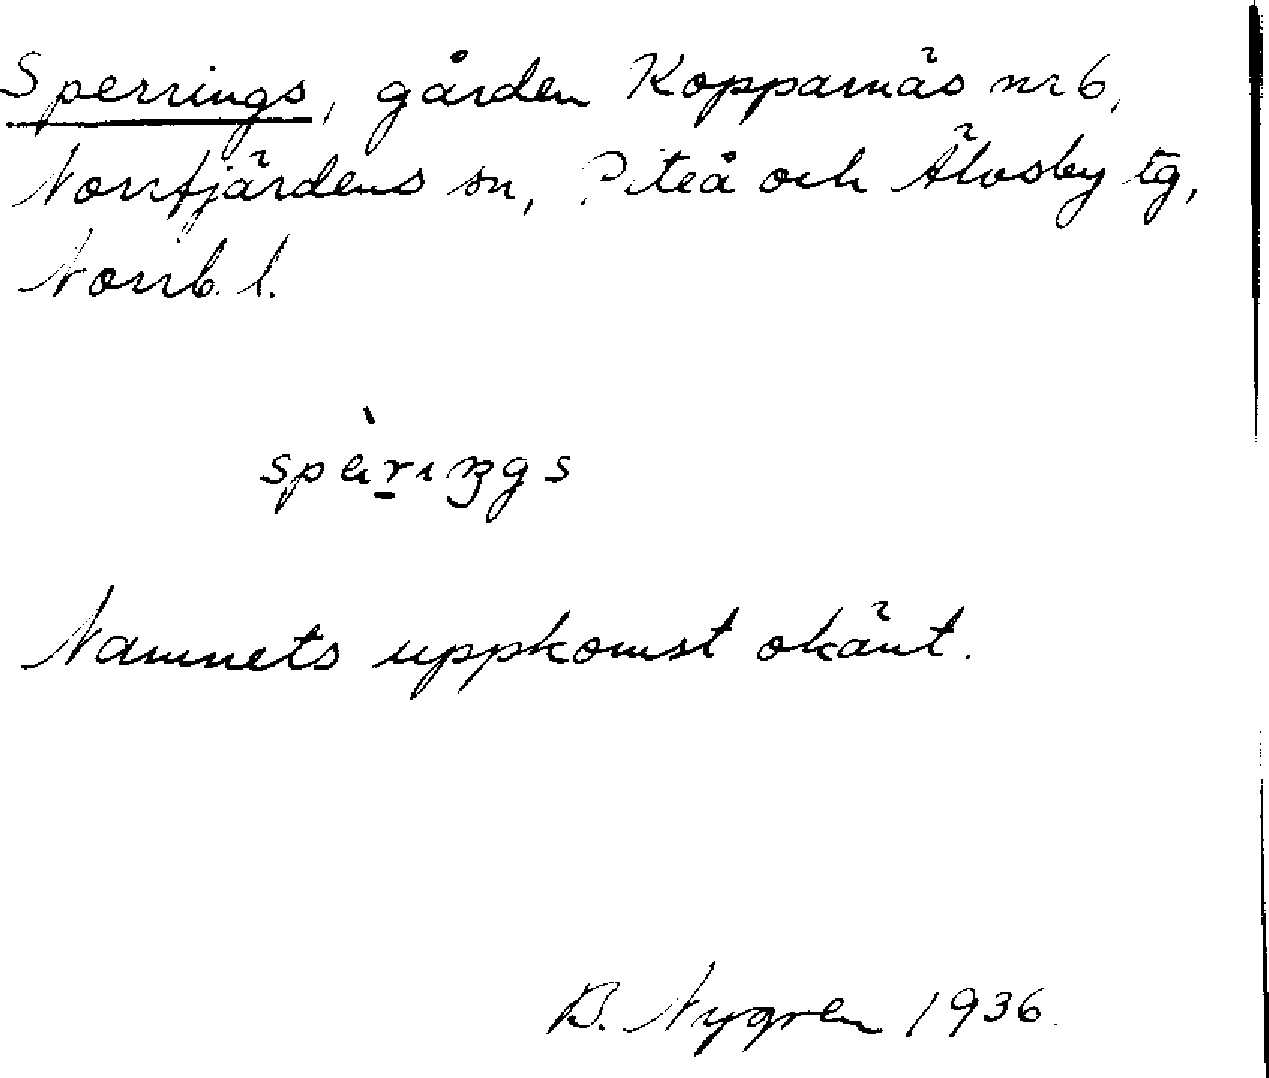 Sperrings, gården Kopparnäs nr 6,
Norrfjärdens sn, Piteå och Älvsby tg,
Norrb. l.
spè̱rıŋgs
Namnets uppkomst okänt.
B. Nygren 1936.